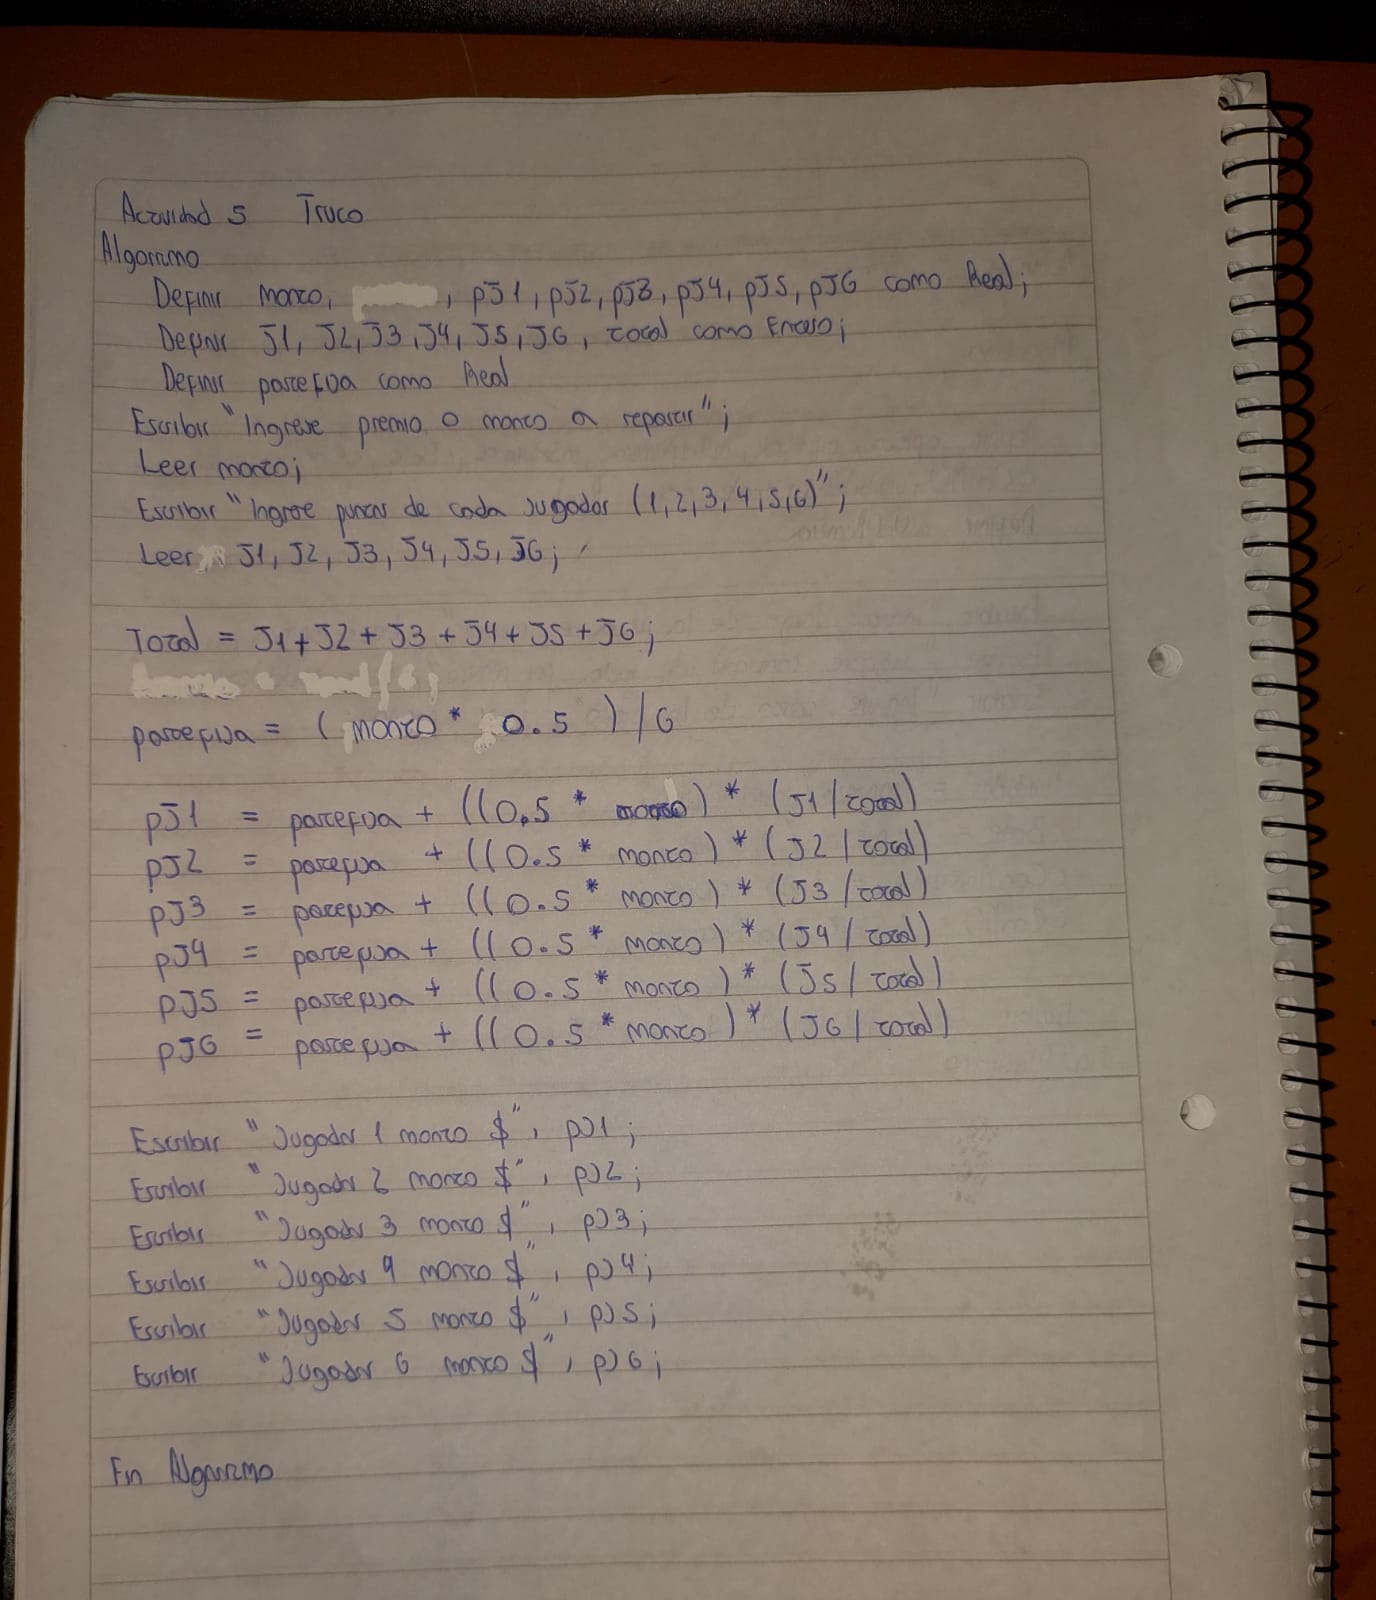 Actividad 5 Truco
Algoritmo
Definir monto, , pJ1, pJ2, pJ3, pJ4, pJ5, pJ6 como Real;
Definir J1, J2, J3, J4, J5, J6, total como Entero;
Definir partefija como Real
Escribir "Ingrese premio o monto a repartir";
Leer monto;
Escribir "Ingrese puntos de cada Jugador (1,2,3,4,5,6)";
Leer J1, J2, J3, J4, J5, J6;
Total = J1+J2+J3+J4+J5+J6;
partefija = (monto * 0.5 )/6
pJ1 = partefija + ((0.5 * monto) * (J1/total)
pJ2 = partefija + ((0.5 * monto) * (J2/total)
pJ3 = partefija + ((0.5 * monto) * (J3/total)
pJ4 = partefija + ((0.5 * monto) * (J4/total)
pJ5 = partefija + ((0.5 * monto) * (J5/total)
pJ6 = partefija + ((0.5 * monto) * (J6/total)
Escribir "Jugador 1 monto $", pJ1;
Escribir "Jugador 2 monto $", pJ2;
Escribir "Jugador 3 monto $", pJ3;
Escribir "Jugador 4 monto $", pJ4;
Escribir "Jugador 5 monto $", pJ5;
Escribir "Jugador 6 monto $", pJ6;
Fin Algoritmo